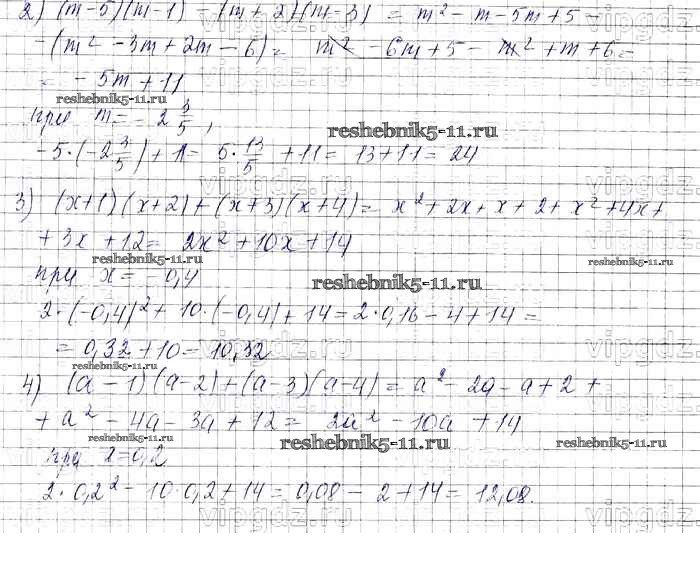 2) (m-5)(m-1) - (m+2)(m-3) = m² - m - 5m + 5 -
- (m² - 3m + 2m - 6) = m² - 6m + 5 - m² + m + 6 =
= - 5m + 11
reshebnik5-11.ru
при m = - 2 3/5,
reshebnik5-11.ru
-5·(-2 3/5) + 11 = 5·13/5 + 11 = 13 + 11 = 24
vipgdz.ru
3) (x+1)(x+2) + (x+3)(x+4) = x² + 2x + x + 2 + x² + 4x +
+ 3x + 12 = 2x² + 10x + 14
reshebnik5-11.ru
reshebnik5-11.ru
при x = - 0,4
reshebnik5-11.ru
2·(-0,4)² + 10·(-0,4) + 14 = 2·0,16 - 4 + 14 =
= 0,32 + 10 = 10,32
vipgdz.ru
reshebnik5-11.ru
4) (a - 1)(a - 2) + (a - 3)(a - 4) = a² - 2a - a + 2 +
+ a² - 4a - 3a + 12 = 2a² - 10a + 14
reshebnik5-11.ru
reshebnik5-11.ru
reshebnik5-11.ru
при a = 0,2
2·0,2² - 10·0,2 + 14 = 0,08 - 2 + 14 = 12,08.
vipgdz.ru